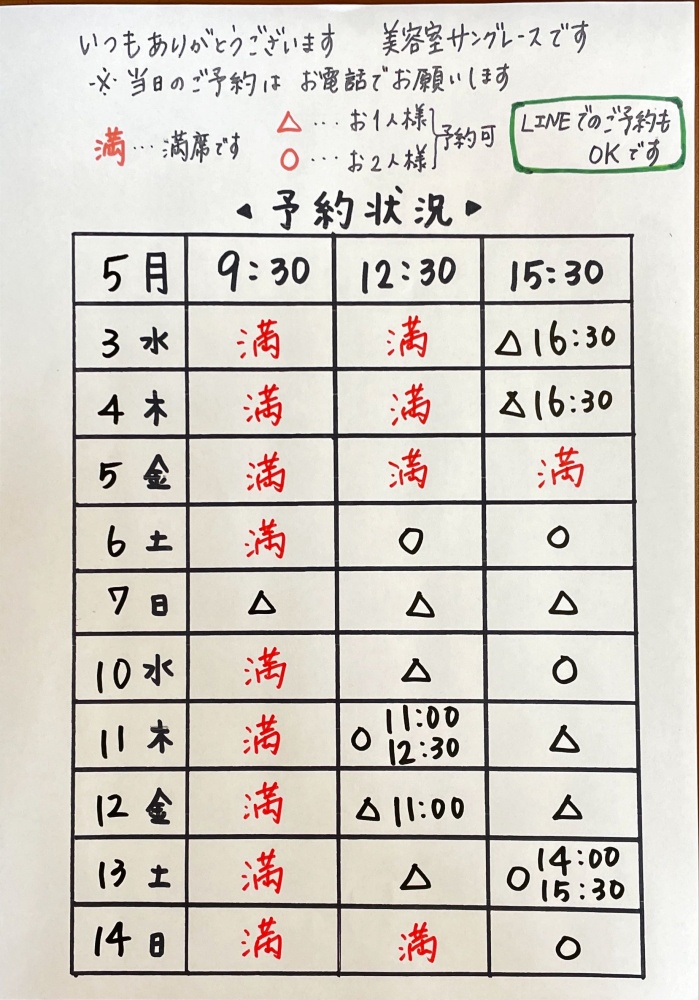 いつもありがとうございます 美容室サングレースです
※当日のご予約は お電話でお願いします
満…満席です
△…お1人様
○…お2人様
予約可
LINEでのご予約も
OKです
◀予約状況▶
5月 9:30 12:30 15:30
3 水 満 満 △16:30
4 木 満 満 △16:30
5 金 満 満 満
6 土 満 ○ ○
7 日 △ △ △
10 水 満 △ ○
11 木 満 ○ 11:00 12:30 △
12 金 満 △11:00 △
13 土 満 △ ○ 14:00 15:30
14 日 満 満 ○